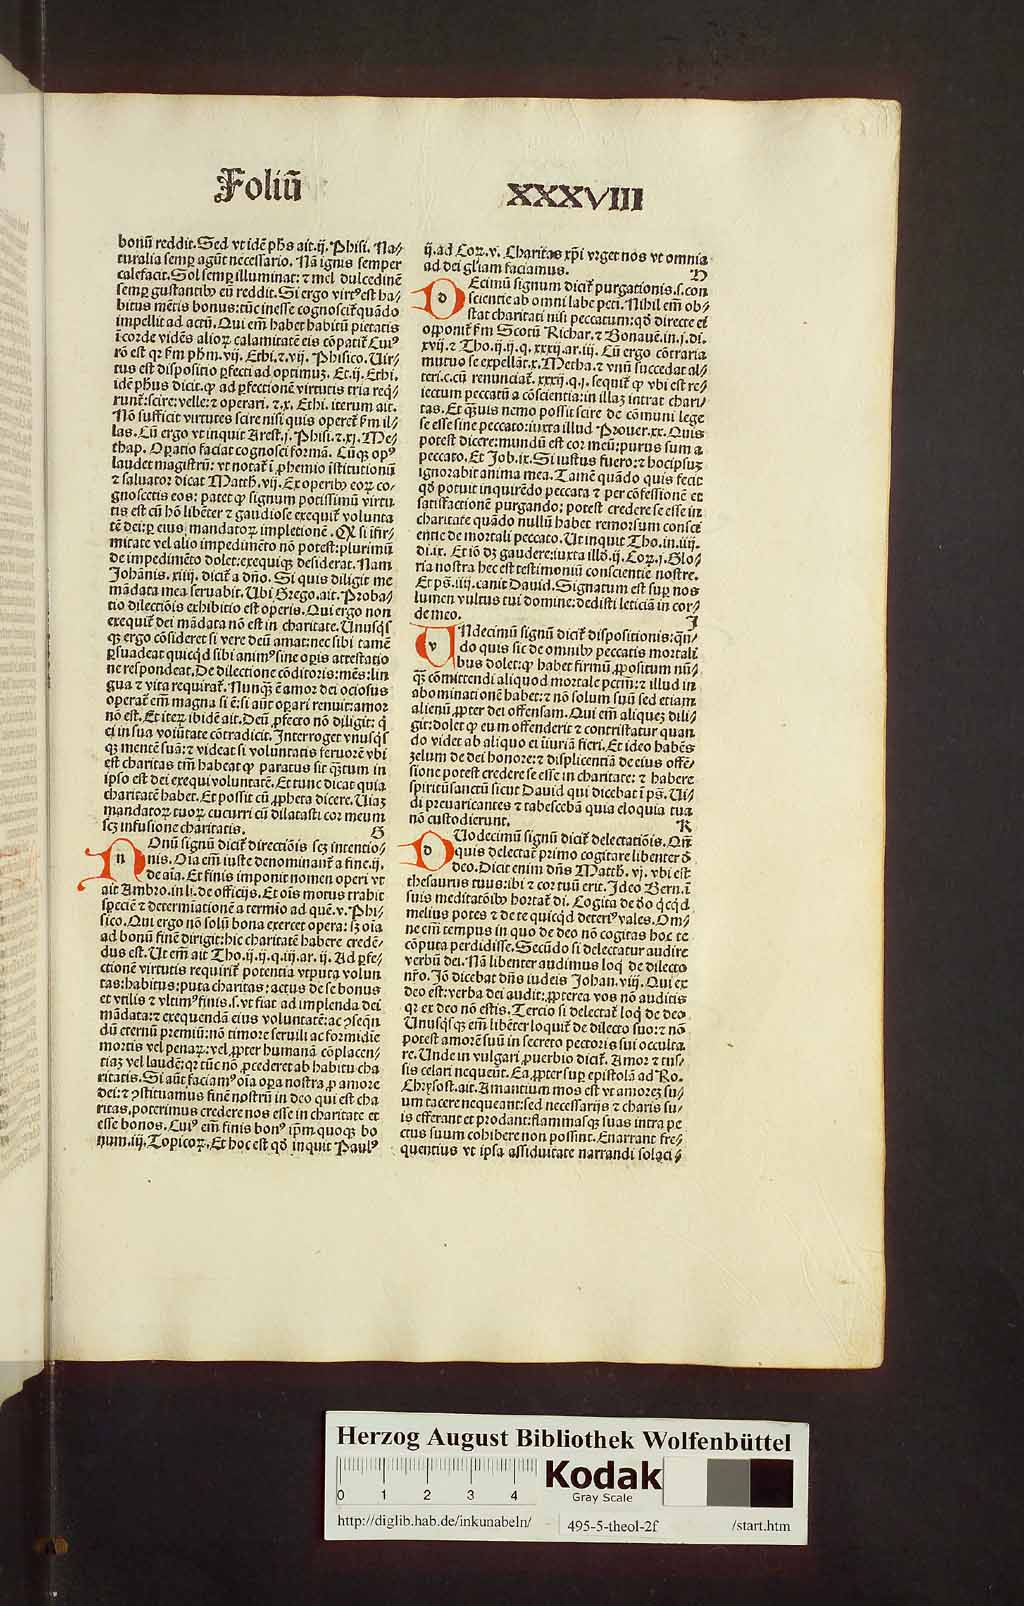 Foliū
XXXVIII
bonū reddit. Sed vt idē phs ait. ij. Phisi. Na⸗
turalia semꝑ agūt necessario. Nā ignis semper
calefacit. Sol semꝑ illuminat: ⁊ mel dulcedinē
semꝑ gustantibꝰ eū reddit. Si ergo virtꝰ est ha⸗
bitus mētis bonus: tūc inesse cognoscit̄ quādo
impellit ad actū. Qui em̄ habet habitū pietatis
ī corde vidēs alioꝝ calamitatē eis cōpatit̄ Cuiꝰ
rō est qꝛ ẜm phm. vij. Ethi. ⁊. vij. Phisico. Vir⸗
tus est dispositio ꝑfecti ad optimuꝫ. Et. ij. Ethi.
idē phus dicit. ꝙ ad ꝑfectionē virtutis tria req̄⸗
runt̄: scire: velle: ⁊ operari. ⁊. x. Ethi. iterum ait.
Nō sufficit virtutes scire nisi quis operet̄ ẜm il⸗
las. Cū ergo vt inquit Arest. j. Phisi. ⁊. xj. Me⸗
thap. Oꝑatio faciat cognosci formā. Cūqꝫ opꝰ
laudet magistrū: vt notat̄ ī ꝓhemio īstitutionū
⁊ saluator dicat Matth. vij. Ex operibꝰ eoꝝ co⸗
gnoscetis eos: patet ꝙ signum potissimū virtu
tis est cū hō libēter ⁊ gaudiose exequit̄ volunta
tē dei: ꝑ eius mandatoꝝ impletionē. Qꝛ si īfir⸗
mitate vel alio impedimēto nō potest: plurimū
de impedimēto dolet: exequiqꝫ desiderat. Nam
Johānis. xiiij. dicit̄ a dn̄o. Si quis diligit me
mādata mea seruabit. Ubi Grego. ait. Proba⸗
tio dilectiōis exhibitio est operis. Qui ergo non
exequit̄ dei mādata nō est in charitate. Unusq̄s
qꝫ ergo cōsideret si vere deū amat: nec sibi tamē
ꝑsuadeat quicq̄d sibi animꝰ sine oꝑis attestatio
ne respondeat. De dilectione cōditoris: mēs: lin
gua ⁊ vita requirat̄. Nunqꝫ ē amor dei ociosus
operat̄ em̄ magna si ē: si aūt oꝑari renuit: amor
nō est. Et iteꝝ ibidē ait. Deū ꝓfecto nō diligit: q̄
ei in sua volūtate cōtradicit. Interroget vnusq̄s
qꝫ mentē suā: ⁊ videat si voluntatis feruorē vbi
est charitas tm̄ habeat ꝙ paratus sit qꝫtum in
ipso est dei exequi voluntatē. Et tunc dicat quia
charitatē habet. Et possit cū ꝓpheta dicere. Uiaꝫ
mandatoꝝ tuoꝝ cucurri cū dilatasti cor meum
scꝫ infusione charitatis.
G
nOnū signū dicit̄ directiōis scꝫ intentio⸗
nis. Oīa em̄ iuste denominant̄ a fine. ij.
de aīa. Et finis imponit nomen operi vt
ait Ambro. in li. de officijs. Et oīs motus trahit
speciē ⁊ determiationē a termio ad quē. v. Phi⸗
sico. Qui ergo nō solū bona exercet opera: sꝫ oīa
ad bonū finē dirigit: hic charitatē habere credē⸗
dus est. Ut em̄ ait Tho. ij. ij. q. iij. ar. ij. Ad ꝑfe⸗
ctionē virtutis requirit̄ potentia vtputa volun
tas: habitus: puta charitas: actus de se bonus
et vtilis ⁊ vltimꝰ finis. s. vt fiat ad implenda dei
mādata: ⁊ exequendā eius voluntatē: ac ꝯseqn̄
dū eternū premiū: nō timore seruili ac formidie
mortis vel penaꝝ: vel ꝓpter humanā cōplacen⸗
tiaꝫ vel laudē: qꝛ tūc nō ꝓcederet ab habitu cha
ritatis. Si aūt faciamꝰ oīa oꝑa nostra ꝓ amore
dei: ⁊ ꝯstituamus finē nostrū in deo qui est cha
ritas, poterimus credere nos esse in charitate et
esse bonos. Cuiꝰ em̄ finis bonꝰ ip̄m quoqꝫ bo
num. iij. Topicoꝝ. Et hoc est qd̄ inquit Paulꝰ
ij. ad Coꝝ. v. Charitas xp̄i vrget nos vt omnia
ad dei gl̄iam faciamus.
H
dEcimū signum dicit̄ purgationis. s. con
scientie ab omni labe pcti. Nihil em̄ ob⸗
stat charitati nisi peccatum: qd̄ directe ei
opponit̄ ẜm Scotū Richar. ⁊ Bonauē. in. j. di.
xvij. ⁊ Tho. ij. ij. q. xxxij. ar. iij. Cū ergo cōtraria
mutuo se expellāt. x. Metha. ⁊ vnū succedat al⸗
teri. c. cū renunciat̄. xxxij. q. j. sequit̄ ꝙ vbi est re⸗
iectum peccatū a cōscientia: in illaꝫ intrat chari⸗
tas. Et qꝫuis nemo possit scire de cōmuni lege
se esse sine peccato: iuxta illud Prouer. xx. Quis
potest dicere: mundū est cor meū: purus sum a
peccato. Et Job. ix. Si iustus fuero: ⁊ hoc ipsuꝫ
ignorabit anima mea. Tamē quādo quis fecit
qd̄ potuit inquirēdo peccata ⁊ per cōfessionē et
satisfactionē purgando: potest credere se esse in
charitate quādo nullū habet remorsum consci
entie de mortali peccato. Ut inquit Tho. in. iiij.
di. ix. Et iō dꝫ gaudere: iuxta illd̄. ij. Coꝝ. j. Glo⸗
ria nostra hec est testimoniū conscientie nostre.
Et ps̄. iiij. canit David. Signatum est suꝑ nos
lumen vultus tui domine: dedisti leticiā in cor⸗
de meo.
J
vNdecimū signū dicit̄ dispositionis: qn̄⸗
do quis sic de omnibꝰ peccatis mortali
bus dolet: ꝙ habet firmū ꝓpositum nū⸗
qꝫ cōmittendi aliquod mortale pctm̄: ⁊ illud in
abominationē habet: ⁊ nō solum suū sed etiam
alienū ꝓpter dei offensam. Qui em̄ aliqueꝫ dili⸗
git: dolet ꝙ eum offenderit ⁊ contristatur quan
do videt ab aliquo ei iiuriā fieri. Et ideo habēs
zelum de dei honore: ⁊ displicentiā de eius offē⸗
sione potest credere se esse in charitate: ⁊ habere
spiritū sanctū sicut Dauid qui dicebat ī ps̄. Ui⸗
di preuaricantes ⁊ tabescebā quia eloquia tua
nō custodierunt.
K
dUodecimū signū dicit̄ delectatiōis. Qm̄
quis delectat̄ primo cogitare libenter d̄
deo. Dicit enim dn̄s Matth. vj. vbi est
thesaurus tuus: ibi ⁊ cor tuū erit. Ideo Bern. ī
suis meditatōibꝰ hortat̄ di. Cogita de deo q̄cq̄d
melius potes ⁊ de te quicq̄d deteriꝰ vales. Om⸗
nē em̄ tempus in quo de deo nō cogitas hoc te
cōputa perdidisse. Secūdo si delectatur audire
verbū dei. Nā libenter audimus loq̄ de dilecto
nr̄o. Iō dicebat dn̄s iudeis Johan. viij. Qui ex
deo est: verba dei audit: ꝓpterea vos nō auditis
qꝛ ex deo nō estis. Tercio si delectat̄ loq̄ de deo
Unusq̄sqꝫ em̄ libēter loquit̄ de dilecto suo: ⁊ nō
potest amorē suū in secreto pectoris sui occulta
re. Unde in vulgari ꝓuerbio dicit̄. Amor ⁊ tus⸗
sis celari nequeūt. Ea ꝓpter suꝑ epistolā ad Ro.
Chrysost. ait. Amantium mos est vt amoreꝫ su⸗
um tacere nequeant: sed necessarijs ⁊ charis su⸗
is efferant et prodant: flammasqꝫ suas intra pe
ctus suum cohibere non possint. Enarrant fre⸗
quentius vt ipsa assiduitate narrandi solaci⸗
Herzog August Bibliothek Wolfenbüttel
0 1 2 3 4
Kodak
Gray Scale
http://diglib.hab.de/inkunabeln/
495-5-theol-2f
/start.htm